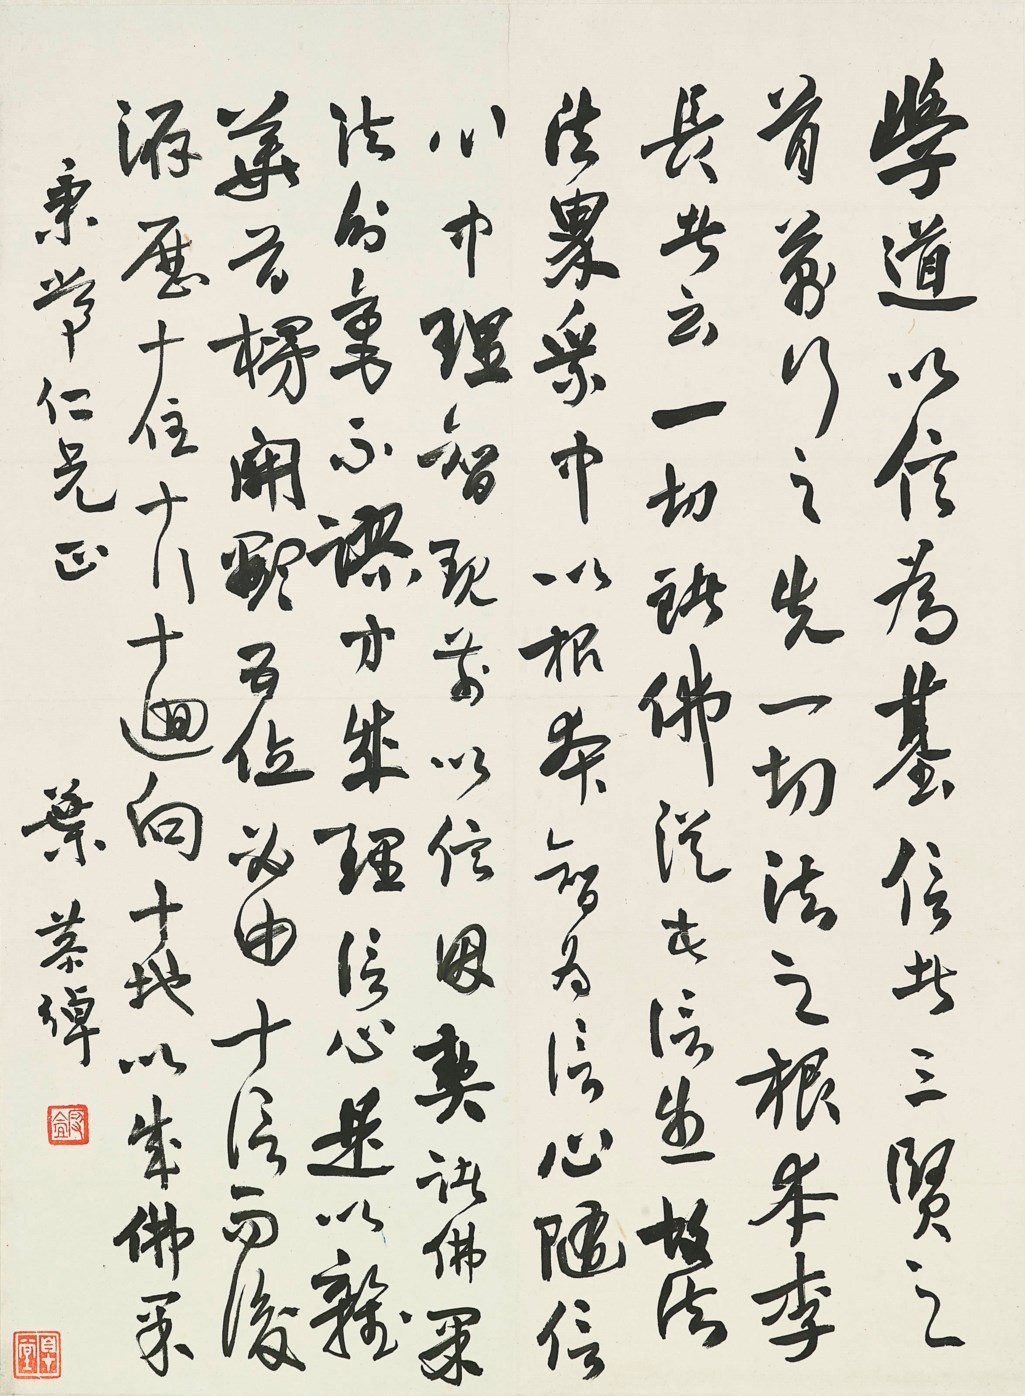 學道以信為基信者三賢之
首萬行之先一切法之根本李
長者云一切諸佛從信生故於
法界乘中以根本智為信心隨信
心中理智現前以信因契諸佛果
法分毫不謬方成理信心是以雜
華首楞開顯五位必由十信而後
游歷十住十行十迴向十地以成佛果
秉常仁兄正
葉恭綽